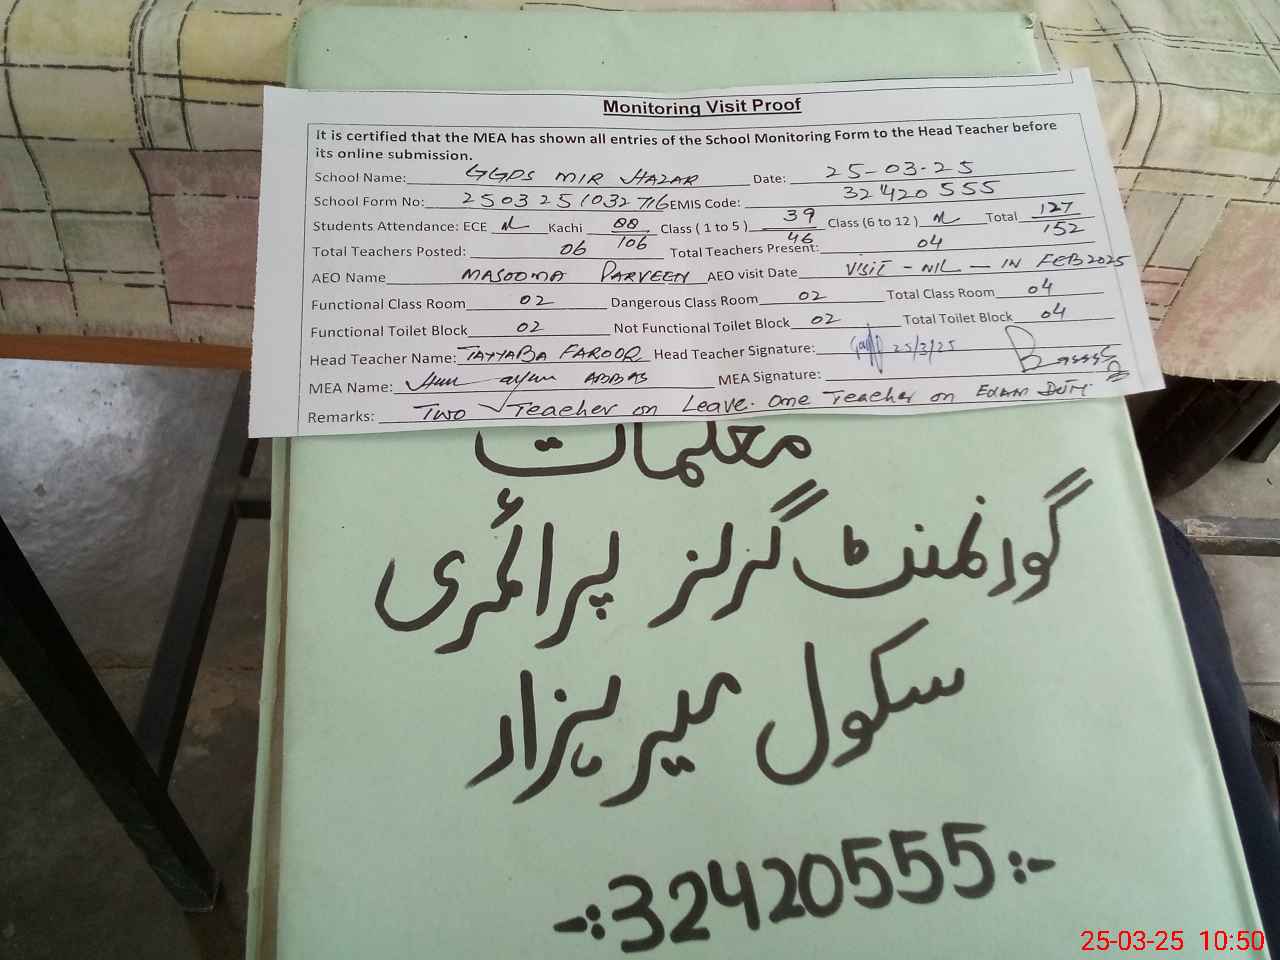 Monitoring Visit Proof
It is certified that the MEA has shown all entries of the School Monitoring Form to the Head Teacher before
its online submission.
School Name: GGPS MIR HAZAR Date: 25-03-25
School Form No: 2503251032716 EMIS Code: 32420555
Students Attendance: ECE Kachi 88/106 Class ( 1 to 5 ) 39/46 Class (6 to 12 ) Total 127/152
Total Teachers Posted: 06 Total Teachers Present: 04
AEO Name MASOOMA PARVEEN AEO visit Date VISIT - NIL - IN FEB 2025
Functional Class Room 02 Dangerous Class Room 02 Total Class Room 04
Functional Toilet Block 02 Not Functional Toilet Block 02 Total Toilet Block 04
Head Teacher Name: TAYYABA FAROOQ Head Teacher Signature: 25/3/25
MEA Name: ABBAS MEA Signature:
Remarks: Two Teacher on Leave. One Teacher on Exam Duty
معلمات
گورنمنٹ گرلز پرائمری
سکول میر ہزار
-:32420555:-
25-03-25 10:50